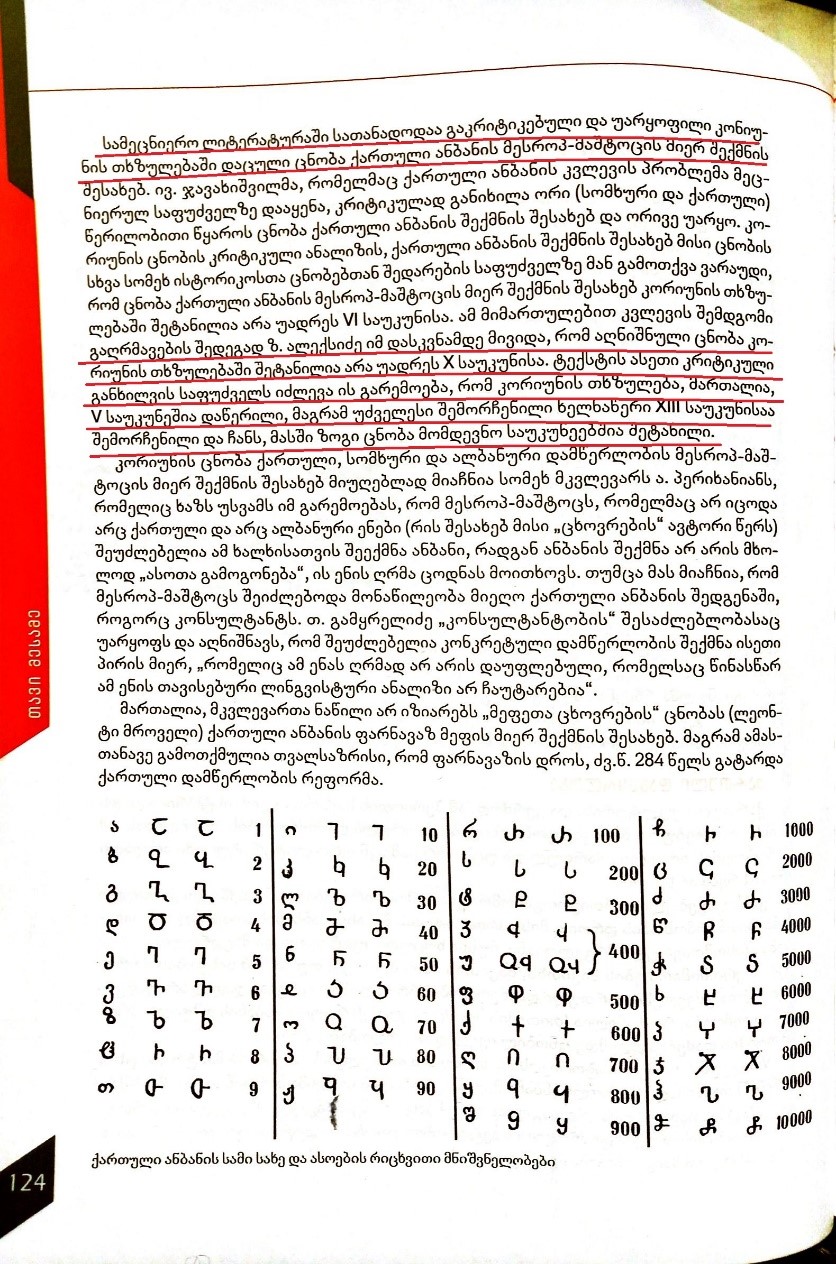 სამეცნიერო ლიტერატურაში სათანადოდაა გაკრიტიკებული და უარყოფილი კორიუ-
ნის თხზულებაში დაცული ცნობა ქართული ანბანის მესროპ-მაშტოცის მიერ შექმნის
შესახებ. ივ. ჯავახიშვილმა, რომელმაც ქართული ანბანის კვლევის პრობლემა მეც-
ნიერულ საფუძველზე დააყენა, კრიტიკულად განიხილა ორი (სომხური და ქართული)
წერილობითი წყაროს ცნობა ქართული ანბანის შექმნის შესახებ და ორივე უარყო. კო-
რიუნის ცნობის კრიტიკული ანალიზის, ქართული ანბანის შექმნის შესახებ მისი ცნობის
სხვა სომეხ ისტორიკოსთა ცნობებთან შედარების საფუძველზე მან გამოთქვა ვარაუდი,
რომ ცნობა ქართული ანბანის მესროპ-მაშტოცის მიერ შექმნის შესახებ კორიუნის თხზუ-
ლებაში შეტანილია არა უადრეს VI საუკუნისა. ამ მიმართულებით კვლევის შემდგომი
გაღრმავების შედეგად ზ. ალექსიძე იმ დასკვნამდე მივიდა, რომ აღნიშნული ცნობა კო-
რიუნის თხზულებაში შეტანილია არა უადრეს X საუკუნისა. ტექსტის ასეთი კრიტიკული
განხილვის საფუძველს იძლევა ის გარემოება, რომ კორიუნის თხზულება, მართალია,
V საუკუნეშია დაწერილი, მაგრამ უძველესი შემორჩენილი ხელნაწერი XIII საუკუნისაა
შემორჩენილი და ჩანს, მასში ზოგი ცნობა მომდევნო საუკუნეებშია შეტანილი.
კორიუნის ცნობა ქართული, სომხური და ალბანური დამწერლობის მესროპ-მაშ-
ტოცის მიერ შექმნის შესახებ მიუღებლად მიაჩნია სომეხ მკვლევარს ა. პერიხანიანს,
რომელიც ხაზს უსვამს იმ გარემოებას, რომ მესროპ-მაშტოცს, რომელმაც არ იცოდა
არც ქართული და არც ალბანური ენები (რის შესახებ მისი „ცხოვრების“ ავტორი წერს)
შეუძლებელია ამ ხალხისათვის შეექმნა ანბანი, რადგან ანბანის შექმნა არ არის მხო-
ლოდ „ასოთა გამოგონება“, ის ენის ღრმა ცოდნას მოითხოვს. თუმცა მას მიაჩნია, რომ
მესროპ-მაშტოცს შეიძლებოდა მონაწილეობა მიეღო ქართული ანბანის შედგენაში,
როგორც კონსულტანტს. თ. გამყრელიძე „კონსულტანტობის“ შესაძლებლობასაც
უარყოფს და აღნიშნავს, რომ შეუძლებელია კონკრეტული დამწერლობის შექმნა ისეთი
პირის მიერ, „რომელიც ამ ენას ღრმად არ არის დაუფლებული, რომელსაც წინასწარ
ამ ენის თავისებური ლინგვისტური ანალიზი არ ჩაუტარებია“.
მართალია, მკვლევართა ნაწილი არ იზიარებს „მეფეთა ცხოვრების“ ცნობას (ლეონ-
ტი მროველი) ქართული ანბანის ფარნავაზ მეფის მიერ შექმნის შესახებ. მაგრამ ამას-
თანავე გამოთქმულია თვალსაზრისი, რომ ფარნავაზის დროს, ძვ.წ. 284 წელს გატარდა
ქართული დამწერლობის რეფორმა.
ა Ⴀ Ⴀ 1
ბ Ⴁ Ⴁ 2
გ Ⴂ Ⴂ 3
დ Ⴃ Ⴃ 4
ე Ⴄ Ⴄ 5
ვ Ⴅ Ⴅ 6
ზ Ⴆ Ⴆ 7
ჱ Ⴡ Ⴡ 8
თ Ⴇ Ⴇ 9
ი Ⴈ Ⴈ 10
კ Ⴉ Ⴉ 20
ლ Ⴊ Ⴊ 30
მ Ⴋ Ⴋ 40
ნ Ⴌ Ⴌ 50
ჲ Ⴢ Ⴢ 60
ო Ⴍ Ⴍ 70
პ Ⴎ Ⴎ 80
ჟ Ⴏ Ⴏ 90
რ Ⴐ Ⴐ 100
ს Ⴑ Ⴑ 200
ტ Ⴒ Ⴒ 300
ჳ Ⴣ Ⴣ
უ ႭჃ ႭჃ 400
ფ Ⴔ Ⴔ 500
ქ Ⴕ Ⴕ 600
ღ Ⴖ Ⴖ 700
ყ Ⴗ Ⴗ 800
შ Ⴘ Ⴘ 900
ჩ Ⴙ Ⴙ 1000
ც Ⴚ Ⴚ 2000
ძ Ⴛ Ⴛ 3000
წ Ⴜ Ⴜ 4000
ჭ Ⴝ Ⴝ 5000
ხ Ⴞ Ⴞ 6000
ჴ Ⴤ Ⴤ 7000
ჯ Ⴟ Ⴟ 8000
ჰ Ⴠ Ⴠ 9000
ჵ Ⴥ Ⴥ 10000
ქართული ანბანის სამი სახე და ასოების რიცხვითი მნიშვნელობები
თავი მესამე
124